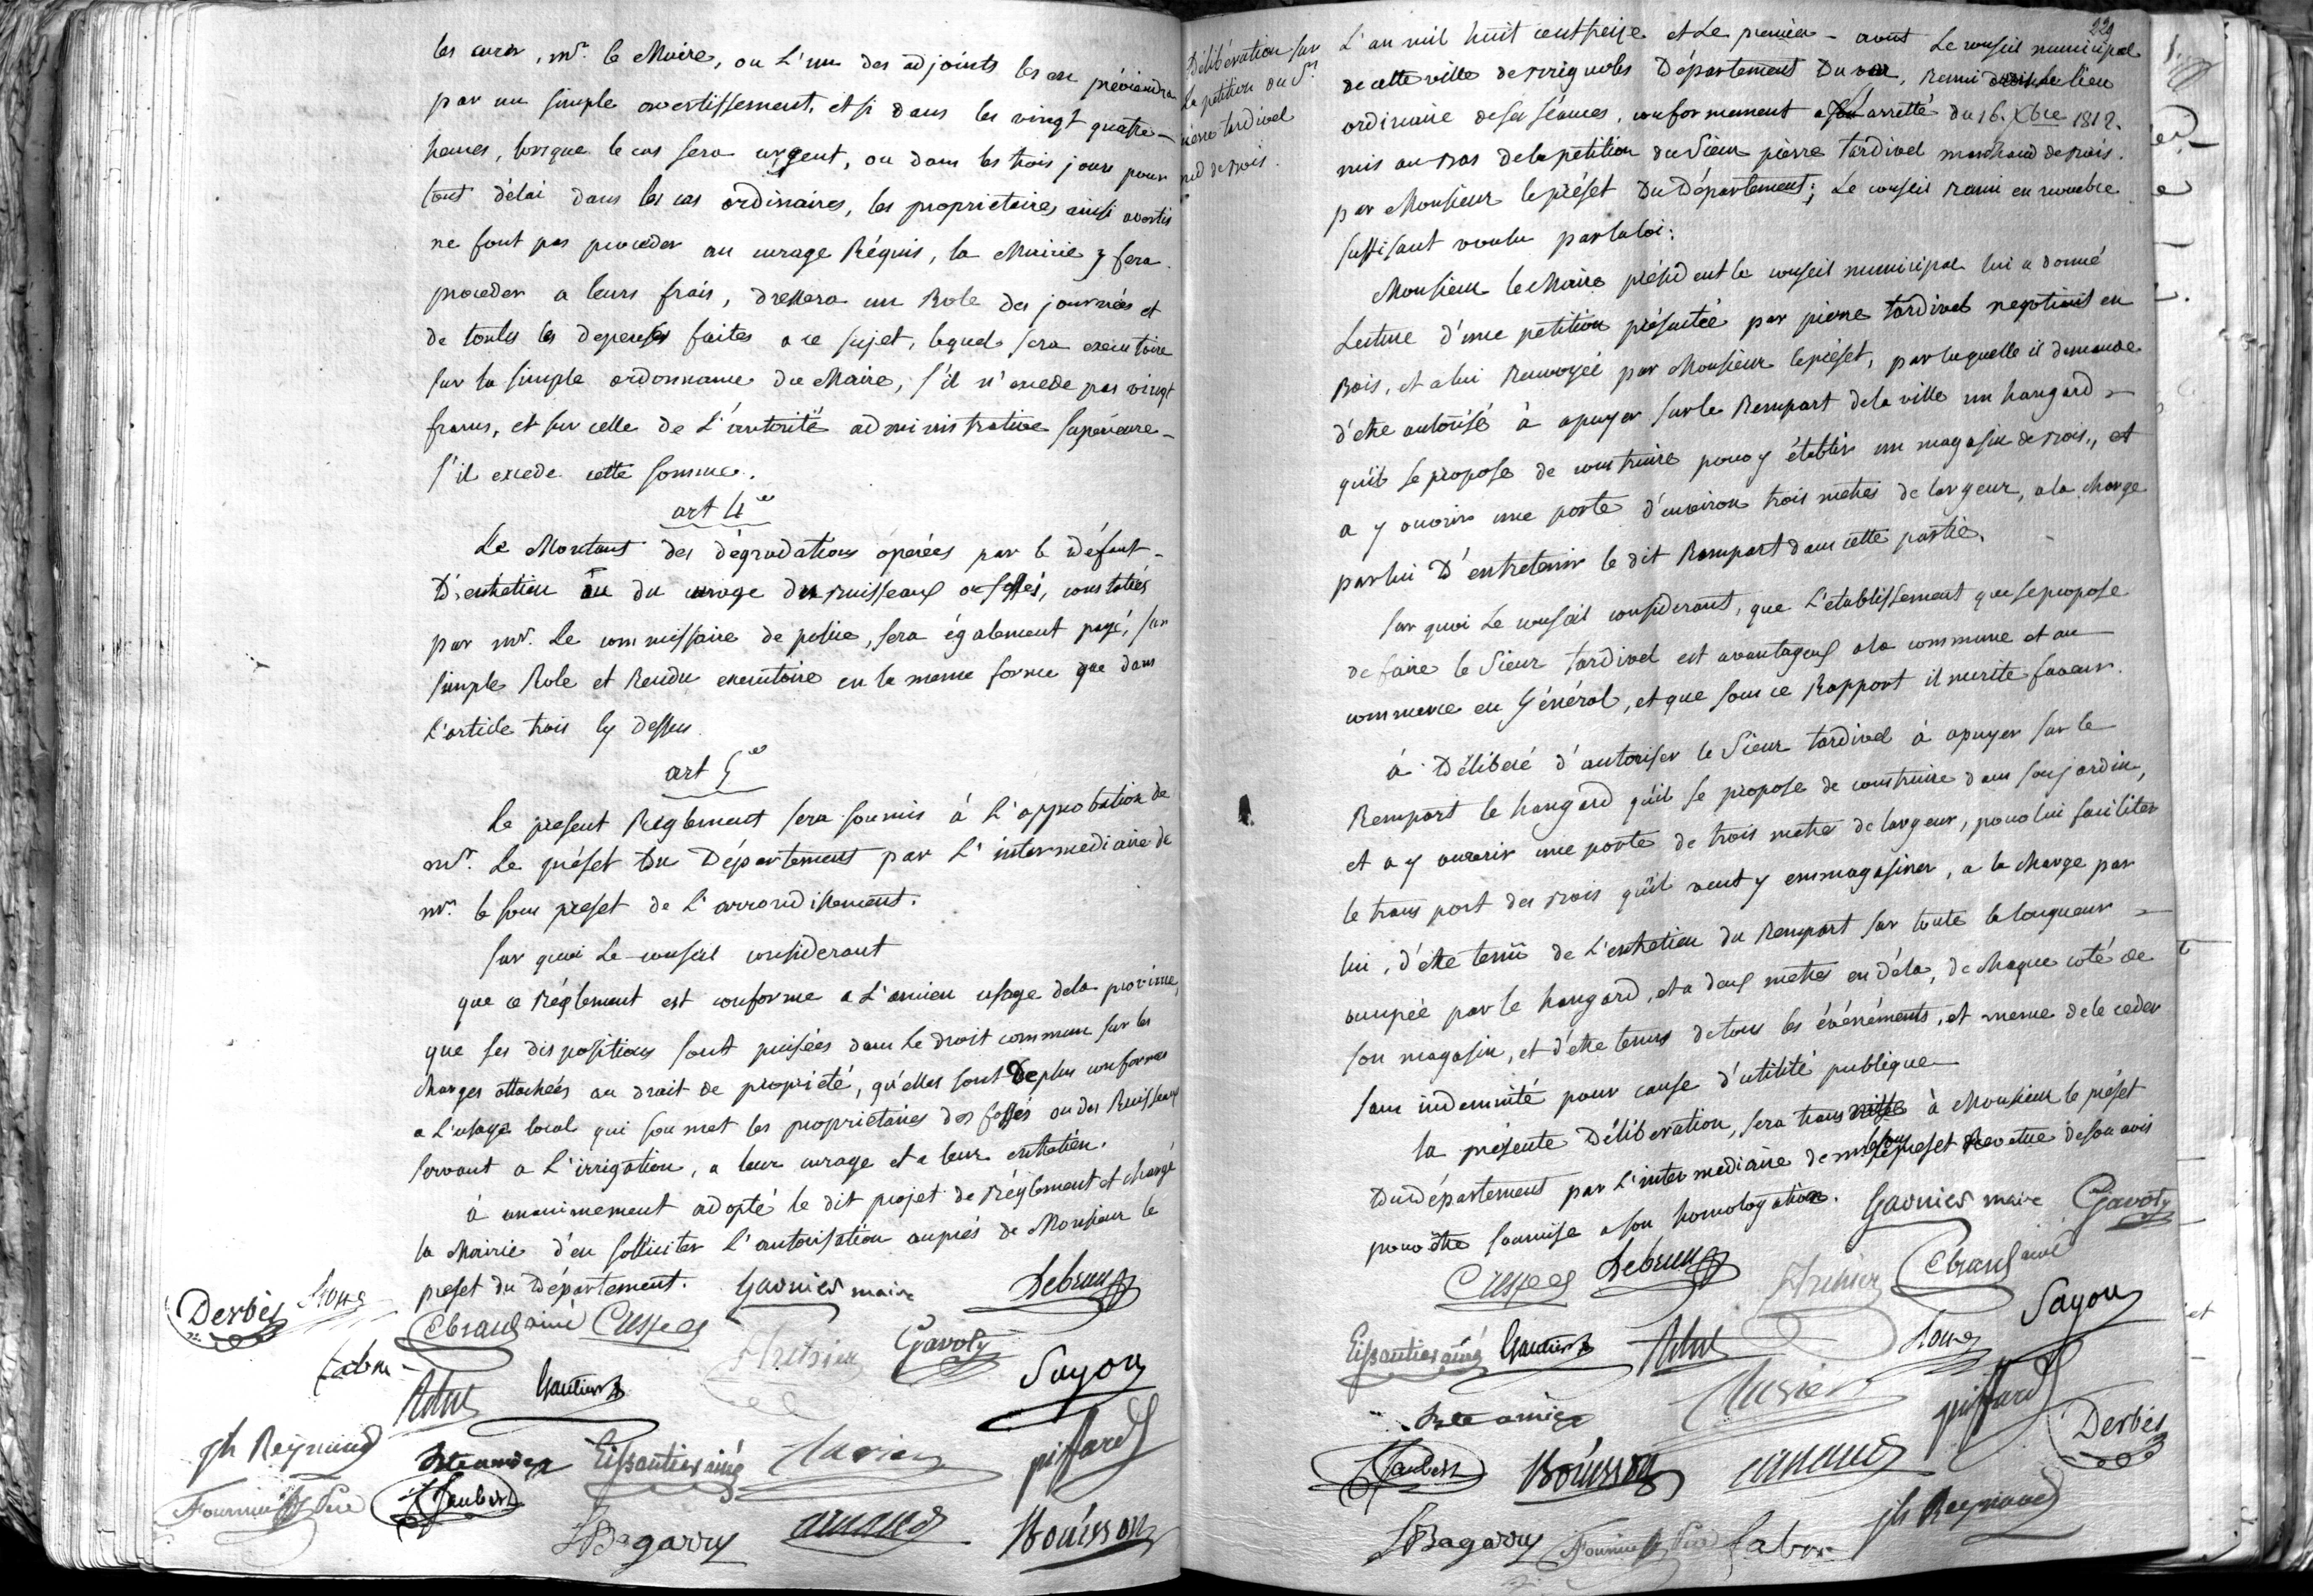 les curer, mr. le Maire, ou L'un des adjoints les en préviendra
par un simple avertissement, et si dans les vingt quatre
heures, lorsque le cas sera urgent, ou dans les trois jours pour
tout délai dans les cas ordinaires, les proprietaires ainsi avertis
ne font pas proceder au curage Réquis, la Mairie y fera
proceder a leurs frais, dressera un Role des journées et
de toutes les depenses faites a ce sujet, lequel sera executoire
sur la simple ordonnance du Maire, s'il n'excede pas vingt
francs, et sur celle de L'autorité administrative superieure
s'il excede cette somme.
art 4e
Le Montant des dégradations operées par le défaut
D'entretien ou du curage des ruisseaux ou fossés, constatées
par mr. Le commissaire de police, sera également payé, sur
simple Role et Rendu executoire en la meme forme que dans
L'article trois cy dessus.
art 5e
Le present Reglement sera soumis à L'approbation de
mr. Le préfet du Département par L'intermediaire de
mr. le sous prefet de L'arrondissement.
sur quoi Le conseil considerant
que ce Réglement est conforme a L'ancien usage dela province,
que ses dispositions sont puisées dans Le droit commun sur les
charges attachées au droit de propriété, qu'elles sont De plus conformes
a L'usage local qui soumet les proprietaires des fossés ou des Ruisseaux
servant a L'irrigation, a leur curage et a leur entretien.
à unanimement adopté le dit projet de Réglement et chargé
la Mairie d'en solliciter L'autorisation auprés de Monsieur le
prefet du Département. Garnier maire Lebrun
Derbès Roux
Ebrard ainé Crespes
Gavoty
fabre
Gautier
Sayou
Jh Reynaud
Eissautier ainé
piffard
Fournier
Jaubert
LBagarry
arnaud
Bouisson
229
Délibération sur
La petition du Sr.
pierre tardivel
md de Bois.
L'an mil huit cent treize et Le premier aout Le conseil municipal
de cette ville de Brignoles Département Du var, Reuni dans le lieu
ordinaire deses séances, conformement a Larretté du 16. Xbre 1812.
mis au bas dela petition du Sieur pierre tardivel marchand de bois.
par Monsieur le préfet Du Département; Le conseil Reuni en nombre
suffisant voulu par la loi:
Monsieur le Maire président le conseil municipal lui a donné
Lecture d'une petition présentée par pierre tardivel negotiant en
Bois, et a lui Renvoyée par Monsieur le préfet, par laquelle il demande
d'etre autorisé à apuyer sur le Rempart dela ville un hangard
qu'il se propose de construire pour y établir un magasin de bois, et
a y ouvrir une porte d'environ trois mètres de largeur, ala charge
par lui D'entretenir le dit Rampart dans cette partie.
sur quoi Le conseil considerant, que L'etablissement que se propose
de faire le Sieur tardivel est avantageux ala commune et au
commerce en Général, et que sous ce Rapport il merite faveur.
à Délibéré d'autoriser le Sieur tardivel à apuyer sur le
Rempart le hangard qu'il se propose de construire dans son jardin,
et a y ouvrir une porte de trois metres de largeur, pour lui faciliter
le transport des bois qu'il veut y emmagasiner, a la charge par
lui, d'étre tenu de L'entretien du Rempart sur toute la longueur
occupée par le hangard, et a deux metres en déla, de chaque coté de
son magasin, et d'etre tenus de tous les événéments, et meme dele ceder
sans indemnité pour cause d'utilité publique
la présente Délibération, sera transmise à Monsieur le préfet
Du Département par L'intermediaire de mr le sous prefet Revetue deson avis
pour etre soumise a son homologation. Garnier maire Gavoty
Crespes Lebrun
Ebrard ainé
Eissautier ainé Gautier
Roux
Sayou
piffard
Derbès
Jaubert Bouisson arnaud
Jh Reynaud
LBagarry Fournier fabre